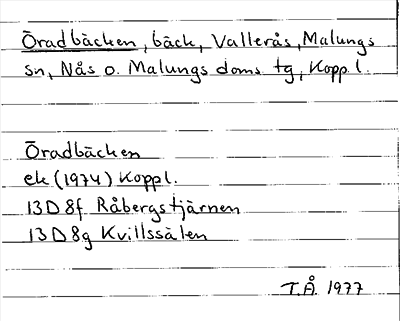 Öradbäcken, bäck, Vallerås, Malungs
sn, Nås o. Malungs doms. tg, Koppl.
Öradbäcken
ek (1974) Koppl.
13D8f Råbergstjärnen
13D8g Kvillssälen
T.Å. 1977